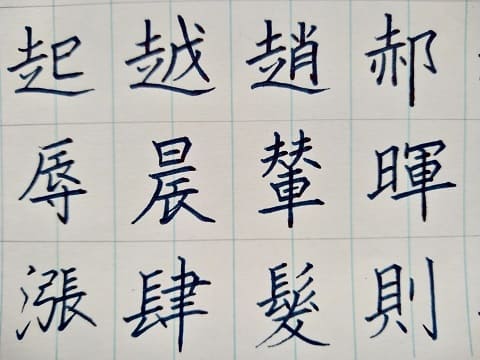 起越趙郝
辱晨輦暉
漲肆髮則